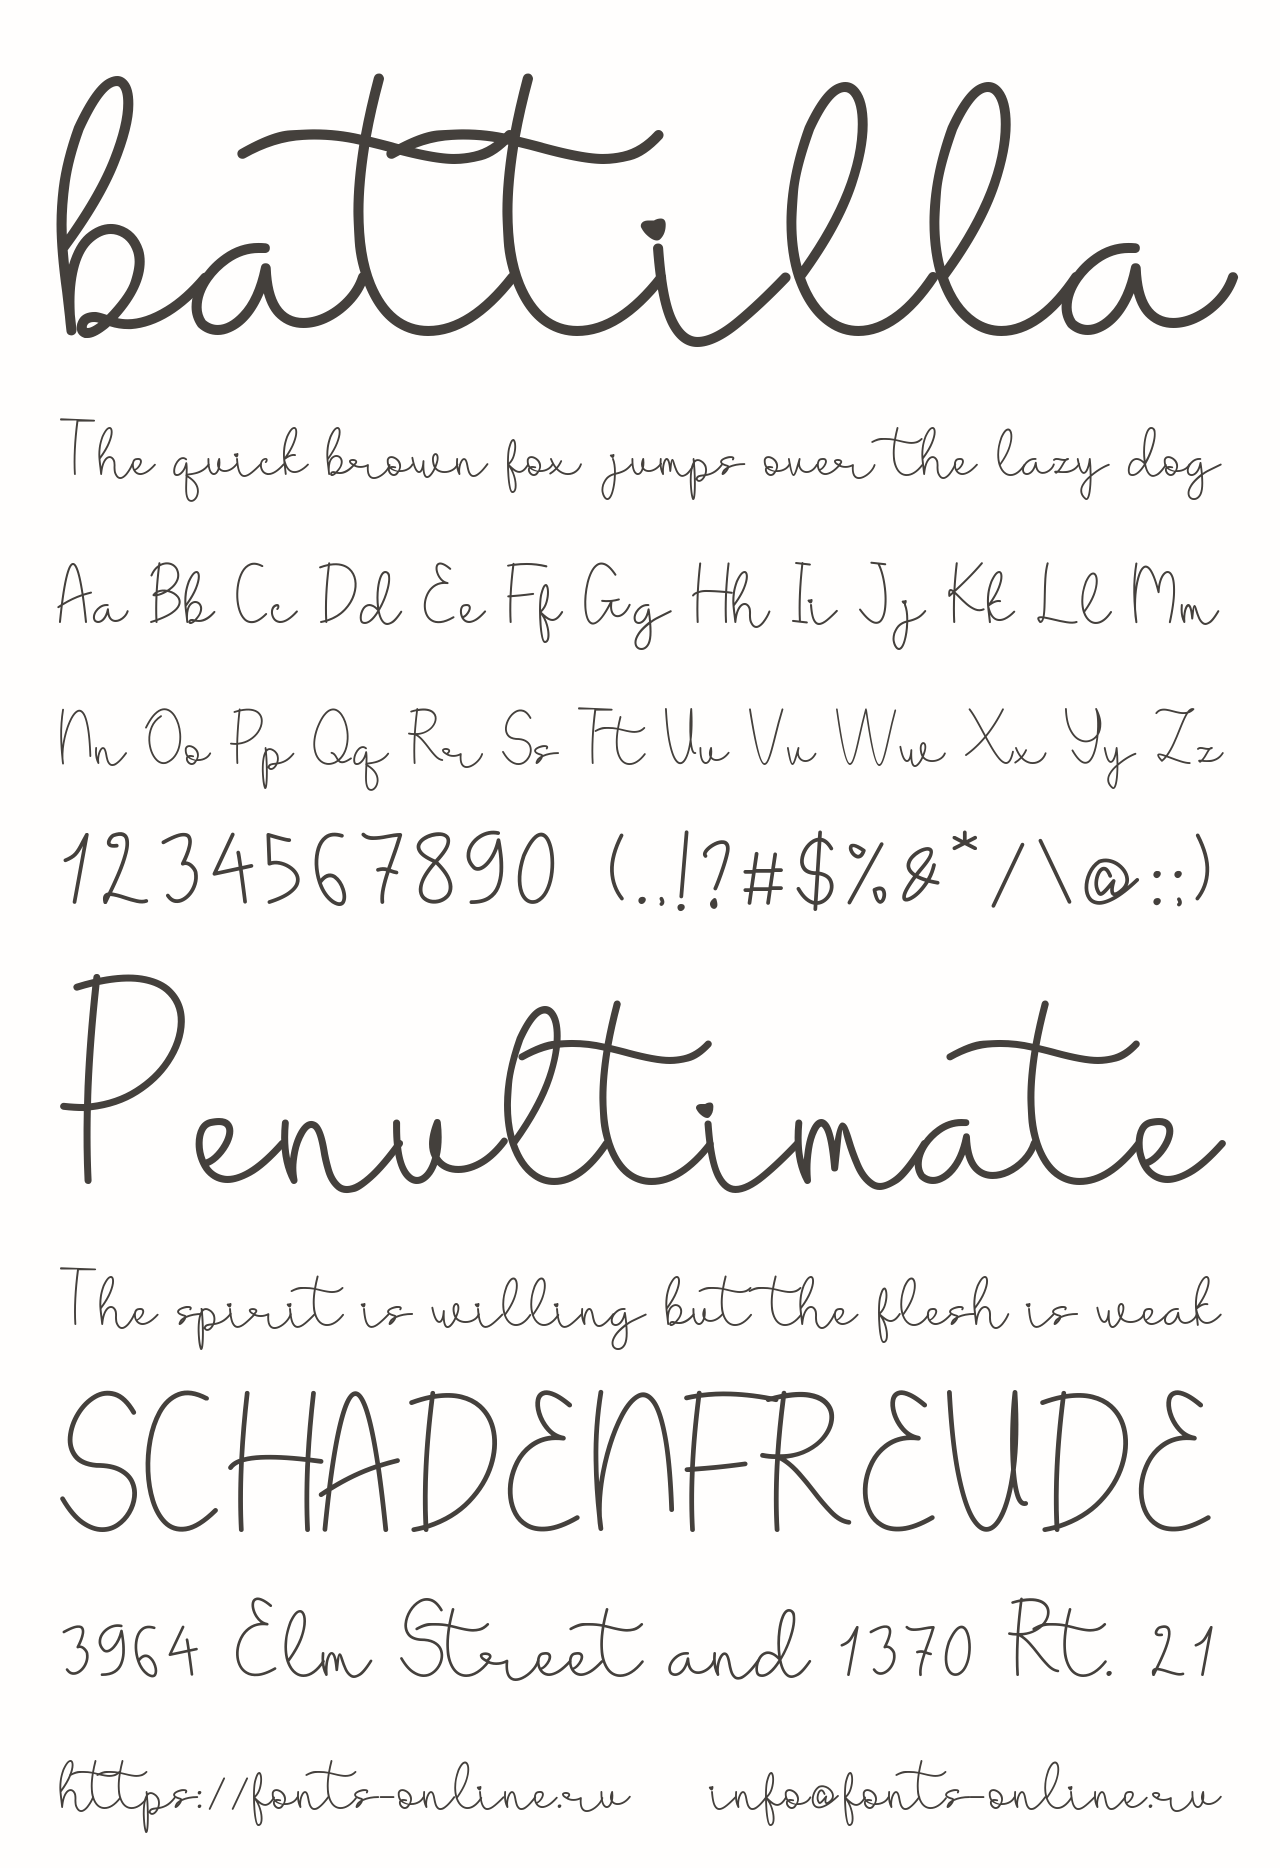 battilla
The quick brown fox jumps over the lazy dog
Aa Bb Cc Dd Ee Ff Gg Hh Ii Jj Kk Ll Mm
Nn Oo Pp Qq Rr Ss Tt Uu Vv Ww Xx Yy Zz
1234567890 (.,!?#$%&*/\@:;)
Penultimate
The spirit is willing but the flesh is weak
SCHADENFREUDE
3964 Elm Street and 1370 Rt. 21
https://fonts-online.ru info@fonts-online.ru